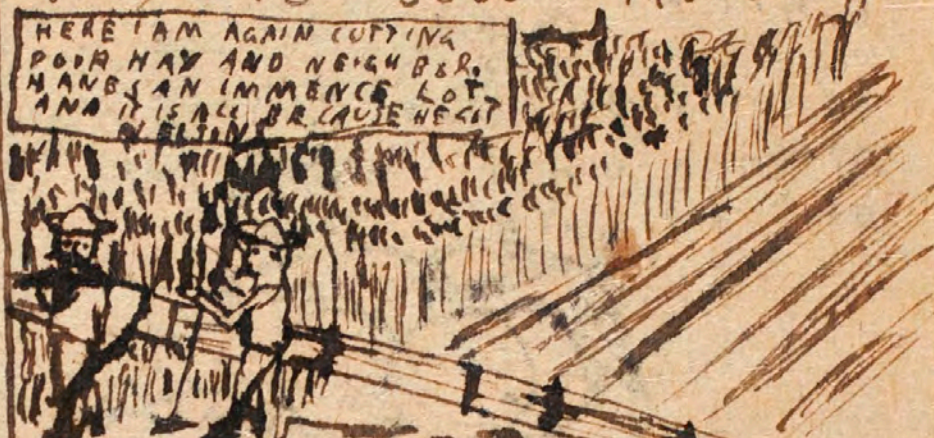 HERE I AM AGAIN CUTTING
POOR HAY AND NEIGHBOR
HANES AN IMMENCE LOT
AND IT IS ALL BECAUSE HE GIT